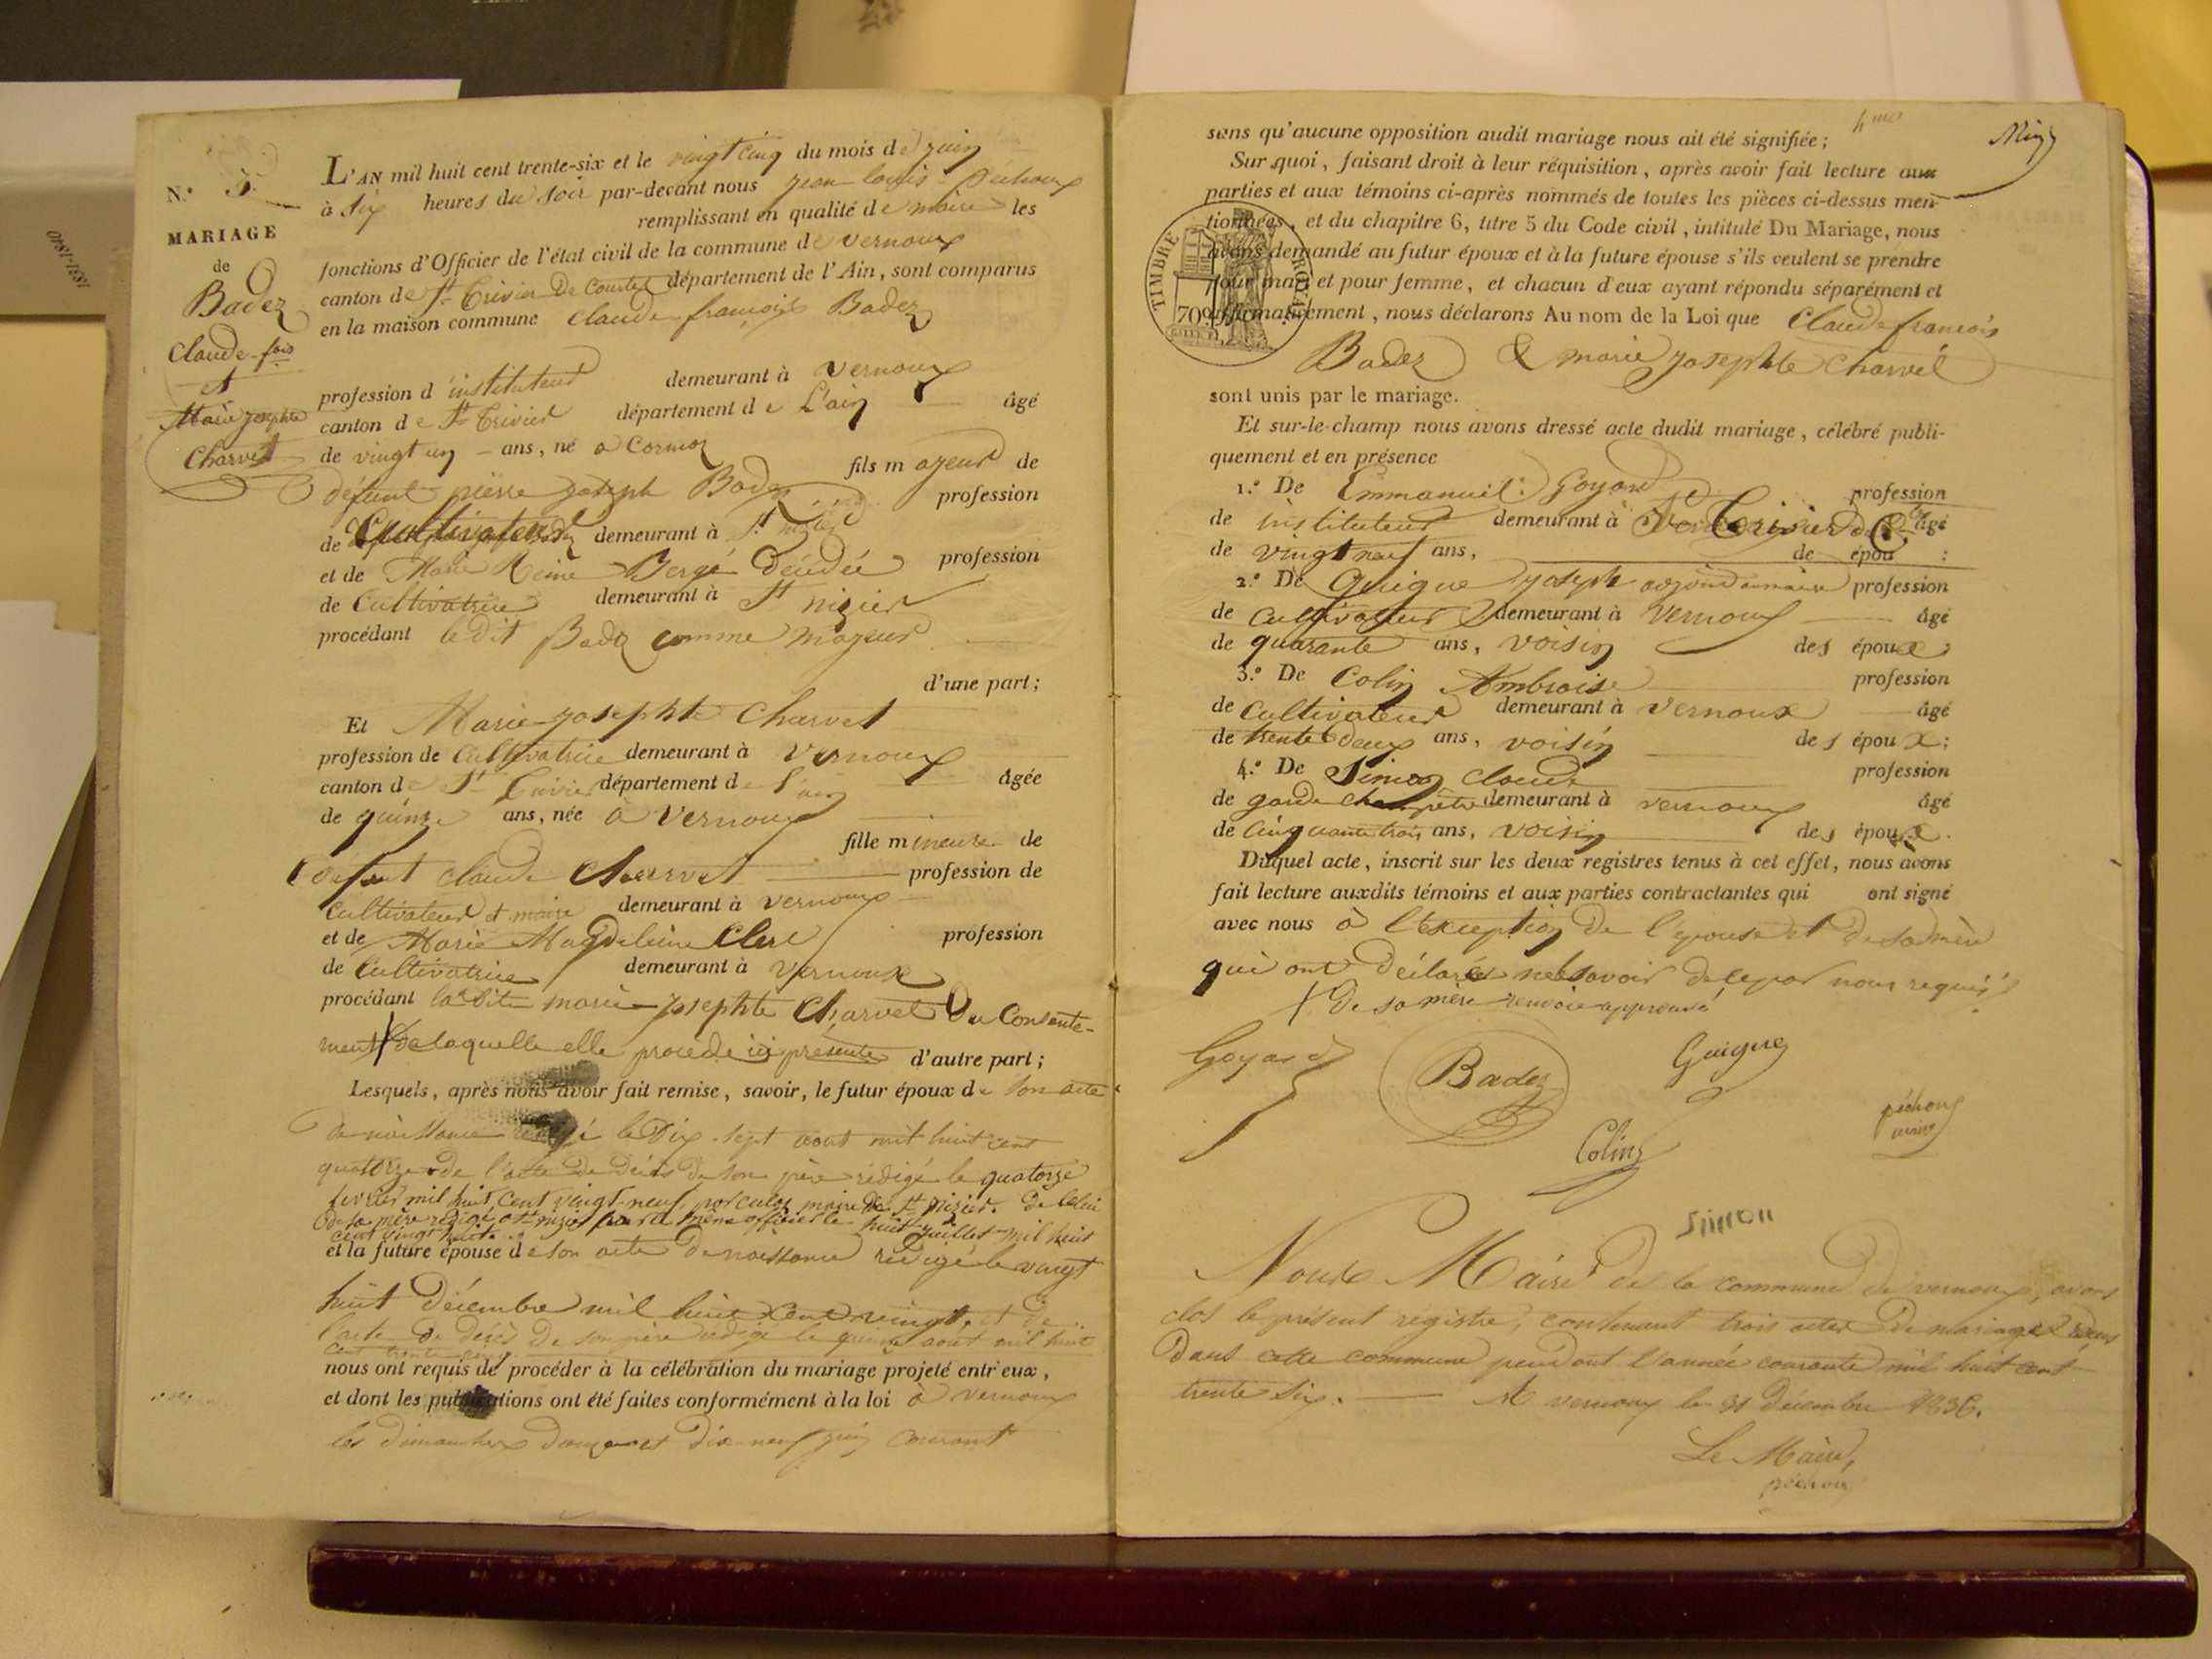 N.° 3.
MARIAGE
de
Badez
Claude-fois
et
Marie josephte
Charvet
L'AN mil huit cent trente-six et le vingt cinq du mois de juin
à Six heures du Soir par-devant nous jean-louis Péchoux
remplissant en qualité de maire les
fonctions d'Officier de l'état civil de la commune de vernoux
canton de St Trivier De Courtes département de l'Ain, sont comparus
en la maison commune Claude françois Badez
profession d'instituteur demeurant à vernoux
canton de St Trivier département de L'ain âgé
de vingt un ans, né à Cormoz
fils majeur de
défunt pierre joseph Badez profession
de Cultivateur demeurant à St nizier
et de Marie Reine Bergé Décédée profession
de Cultivatrice demeurant à St nizier
procédant le dit Badez comme majeur
d'une part;
Et Marie-josephte Charvet
profession de Cultivatrice demeurant à Vernoux
canton de St Trivier département de l'ain âgée
de quinze ans, née à Vernoux
fille mineure de
défunt claude Charvet profession de
Cultivateur et maire demeurant à vernoux
et de Marie Magdeleine Clerc profession
de Cultivatrice demeurant à Vernoux
procédant la dite marie-josephte Charvet Du Consente-
ment de laquelle elle procède ici présente d'autre part;
Lesquels, après nous avoir fait remise, savoir, le futur époux de son acte
de naissance rédigé le Dix-sept aout mil huit cent
quatorze de l'acte de Décès de son père rédigé le quatorze
fevrier mil huit cent vingt-neuf, maire de St Nizier. De Celui
de sa mère rédigé a St nizier par le même officier le huit juillet mil huit
cent vingt huit.
et la future épouse de son acte de naissance rédigé le vingt
huit Décembre mil huit cent vingt, et de
l'acte de décès de son père rédigé le quinze aout mil huit
cent trente cinq
nous ont requis de procéder à la célébration du mariage projeté entr'eux,
et dont les publications ont été faites conformément à la loi à vernoux
les dimanches douze et dix-neuf juin courant
sans qu'aucune opposition audit mariage nous ait été signifiée;
Sur quoi, faisant droit à leur réquisition, après avoir fait lecture aux
parties et aux témoins ci-après nommés de toutes les pièces ci-dessus men-
tionnées, et du chapitre 6, titre 5 du Code civil, intitulé Du Mariage, nous
avons demandé au futur époux et à la future épouse s'ils veulent se prendre
pour mari et pour femme, et chacun d'eux ayant répondu séparément et
affirmativement, nous déclarons Au nom de la Loi que Claude françois
Badez & marie josephte Charvet
sont unis par le mariage.
TIMBRE ROYAL
70
Et sur-le-champ nous avons dressé acte dudit mariage, célébré publi-
quement et en présence
1.° De Emmanuel Goyard profession
de instituteur demeurant à âgé
de vingt neuf ans, de épou :
2.° De Guigue joseph adjoint profession
de Cultivateur demeurant à Vernoux âgé
de quarante ans, voisin des époux;
3.° De Colin Ambroise profession
de Cultivateur demeurant à Vernoux âgé
de trente Deux ans, voisin des époux;
4.° De Simon Claude profession
de garde champêtre demeurant à vernoux âgé
de cinquante trois ans, voisin des époux.
Duquel acte, inscrit sur les deux registres tenus à cet effet, nous avons
fait lecture auxdits témoins et aux parties contractantes qui ont signé
avec nous à l'exception de l'épouse et de sa mère
qui ont déclaré ne le savoir de ce par nous requis
de sa mère renvoi approuvé
Goyard
Badez
Guigue
Colin
péchoux
maire
Simon
Nous Maire de la commune de vernoux, avons
clos le présent régistre, contenant trois actes de mariages
Dans cette commune pendant l'année courante mil huit cent
trente Six. A vernoux le 31 décembre 1836.
Le Maire,
péchoux